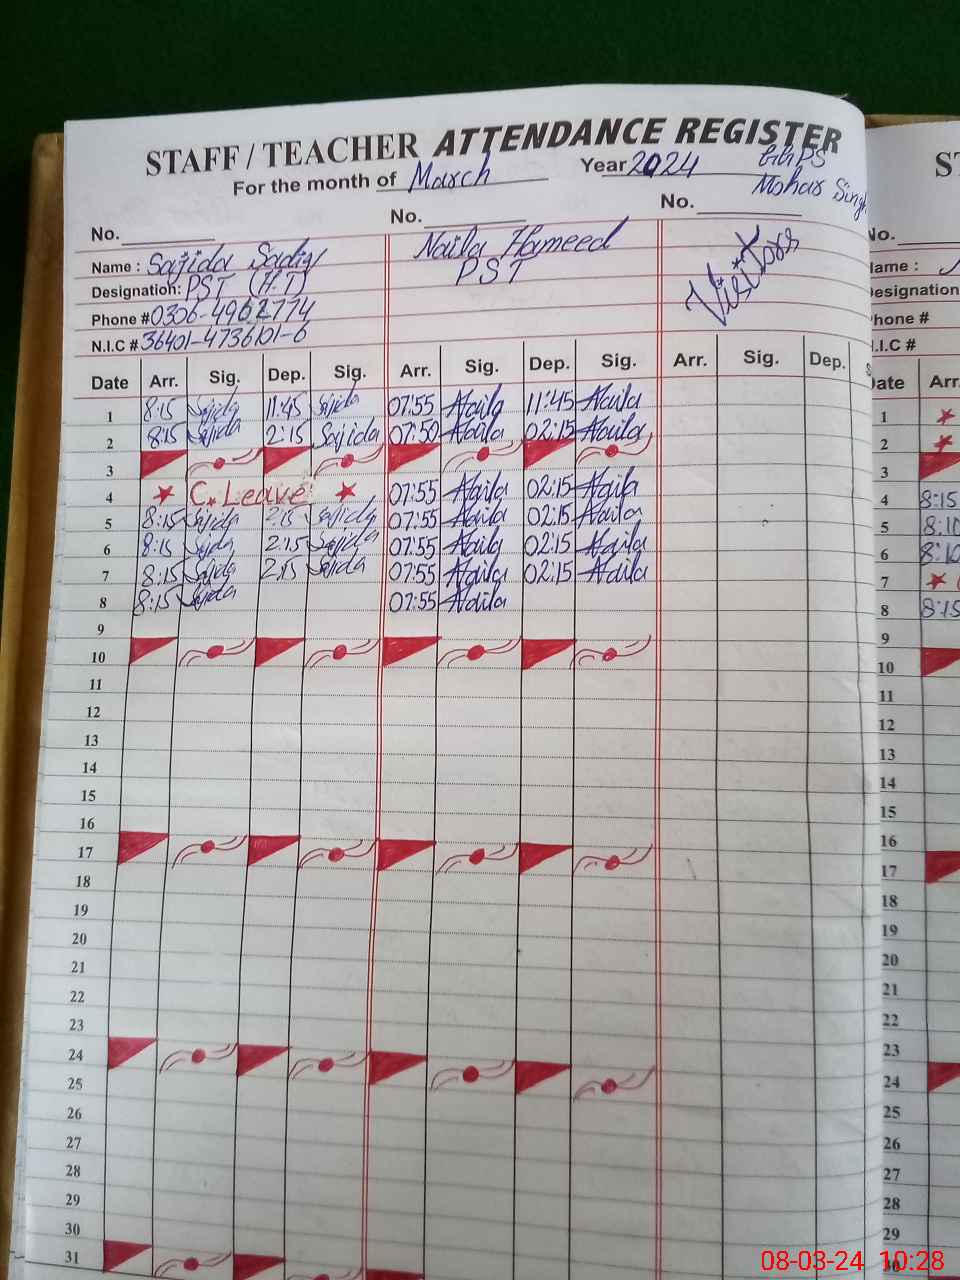 STAFF / TEACHER ATTENDANCE REGISTER
For the month of March Year 2024 GGPS
Mohar Singh
No. No. No.
Name : Sajida Sadiq Naila Hameed Visitors
Designation: PST (H.T) PST
Phone # 0306-4962774
N.I.C # 36401-4736101-6
Date Arr. Sig. Dep. Sig. Arr. Sig. Dep. Sig. Arr. Sig. Dep.
1 8:15 Sajida 11:45 Sajida 07:55 Naila 11:45 Naila
2 8:15 Sajida 2:15 Sajida 07:50 Naila 02:15 Naila
3
4 C. Leave 07:55 Naila 02:15 Naila
5 8:15 Sajida 2:15 Sajida 07:55 Naila 02:15 Naila
6 8:15 Sajida 2:15 Sajida 07:55 Naila 02:15 Naila
7 8:15 Sajida 2:15 Sajida 07:55 Naila 02:15 Naila
8 8:15 Sajida 07:55 Naila
9
10
11
12
13
14
15
16
17
18
19
20
21
22
23
24
25
26
27
28
29
30
31
ST
No.
Name :
Designation
Phone #
N.I.C #
Date Arr.
1
2
3
4 8:15
5 8:10
6 8:10
7
8 8:15
9
10
11
12
13
14
15
16
17
18
19
20
21
22
23
24
25
26
27
28
29
30
08-03-24 10:28